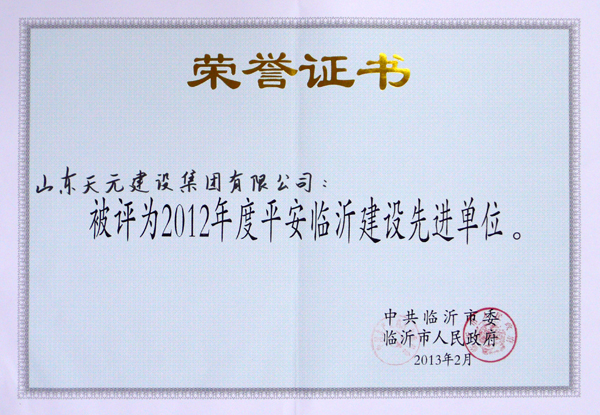 荣誉证书
山东天元建设集团有限公司：
被评为2012年度平安临沂建设先进单位。
中共临沂市委
临沂市人民政府
2013年2月